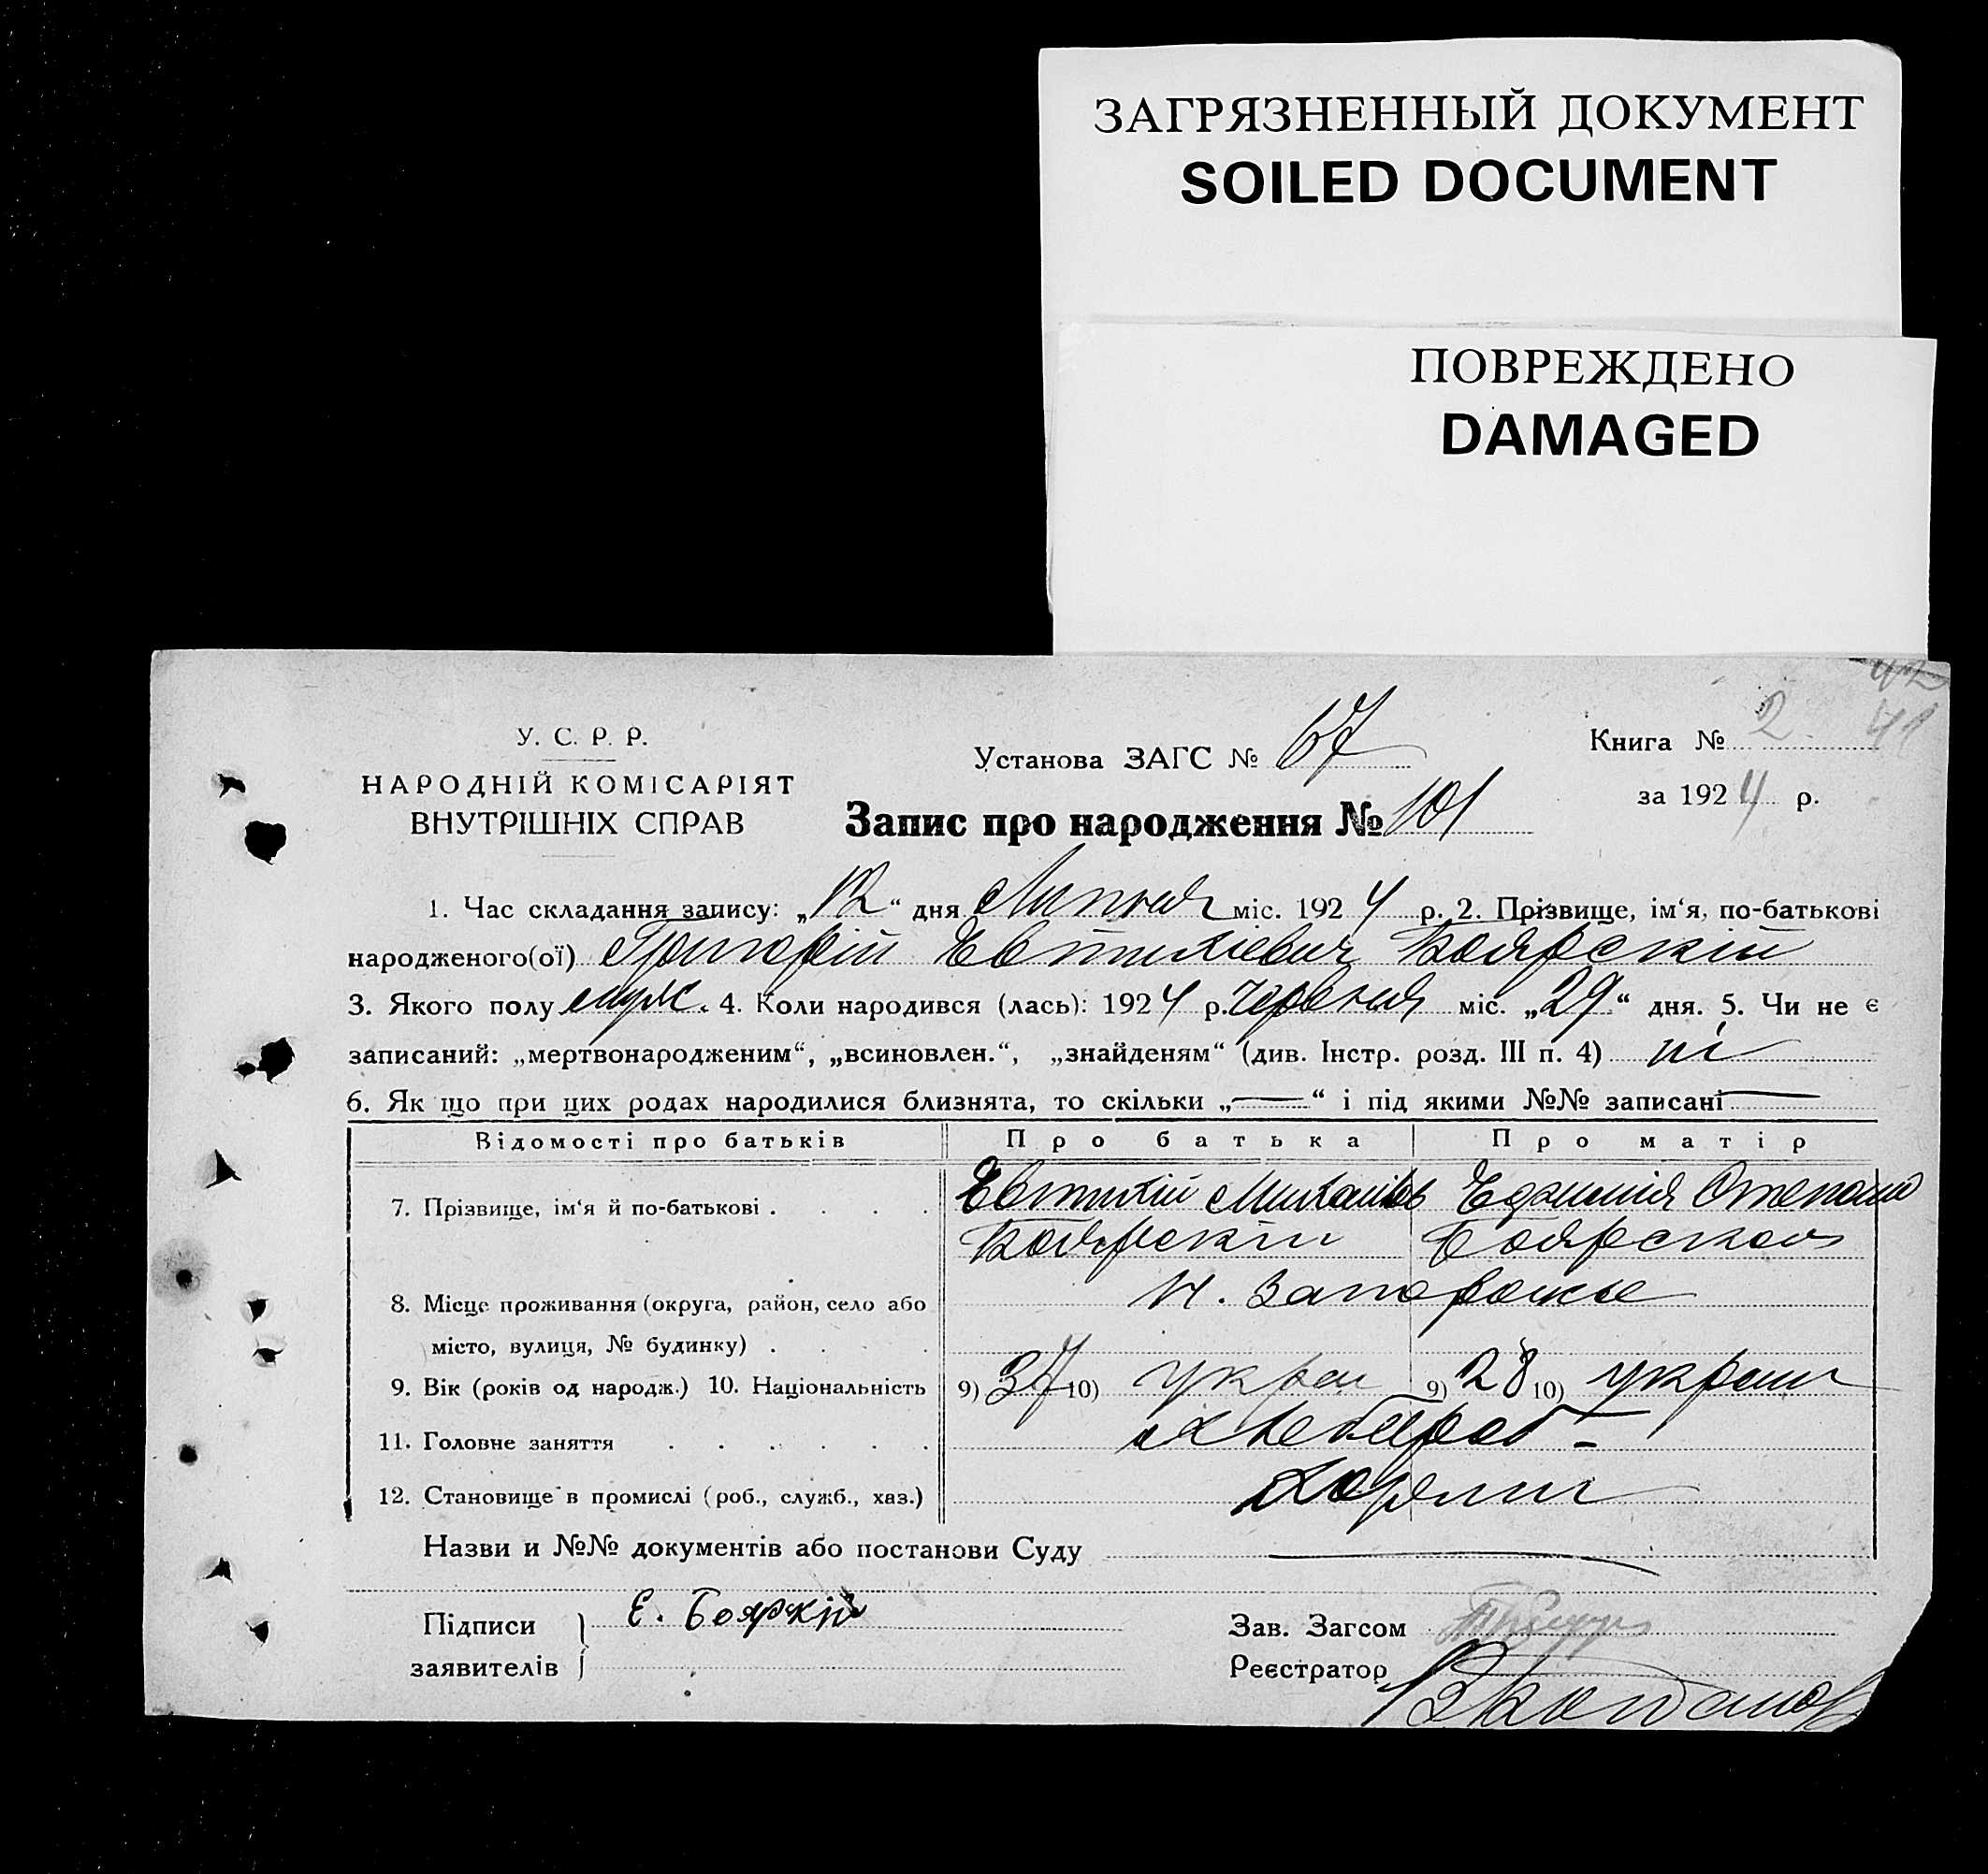 ЗАГРЯЗНЕННЫЙ ДОКУМЕНТ
SOILED DOCUMENT
ПОВРЕЖДЕНО
DAMAGED
42
41
У. С. Р. Р.
НАРОДНІЙ КОМІСАРІЯТ
ВНУТРІШНІХ СПРАВ
Установа ЗАГС № 67
Книга № 2
за 1924 р.
Запис про народження № 101
1. Час складання запису: „12“ дня Липня міс. 1924 р. 2. Прізвище, ім‘я, по-батькові
народженого(ої) Григорій Евтихіевич Боярскій
3. Якого полу муж. 4. Коли народився (лась): 1924 р. Червня міс. „29“ дня. 5. Чи не є
записаний: „мертвонародженим“, „всиновлен.“, „знайденям“ (див. Інстр. розд. III п. 4) ні
6. Як що при цих родах народилися близнята, то скільки „—“ і під якими №№ записані —
Відомості про батьків Про батька Про матір
7. Прізвище, ім‘я й по-батькові . . . . Евтихій Михайлов Степано
Боярскій Боярская
8. Місце проживання (округа, район, село або Запорожье
місто, вулиця, № будинку) . . . .
9. Вік (років од народж.) 10. Національність 9) 37 10) укра 9) 28 10) украин
11. Головне заняття . . . . . . Хлебороб -
12. Становище в промислі (роб., служб., хаз.) Хозяин
Назви и №№ документів або постанови Суду —
Підписи Е. Бояркій
заявителів
Зав. Загсом
Реєстратор